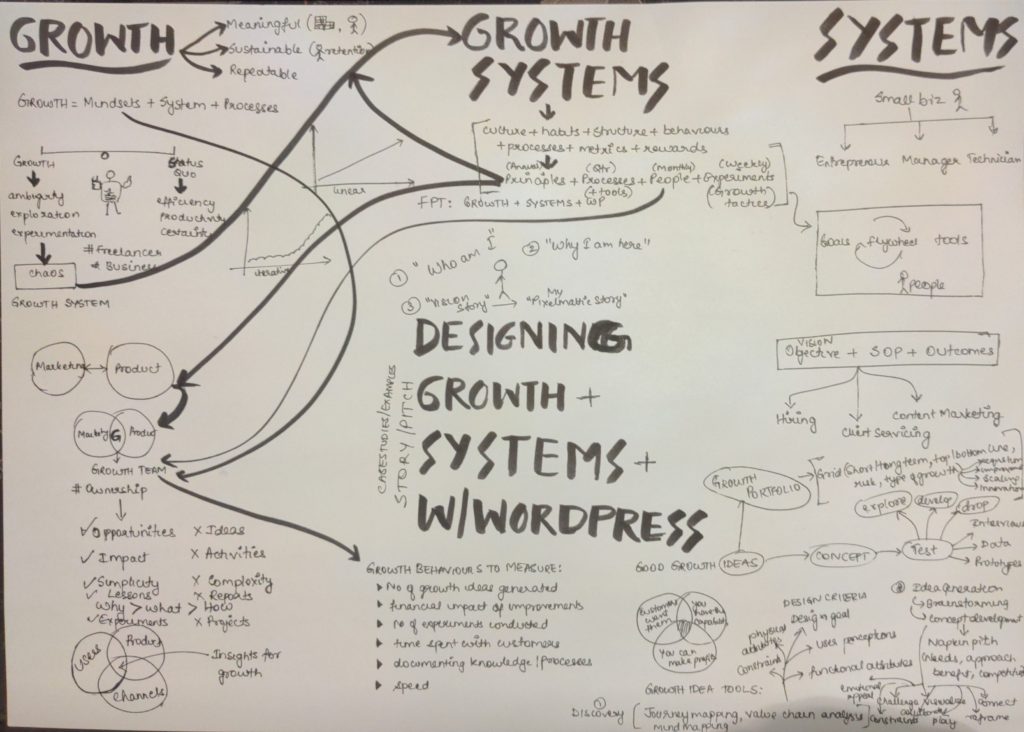 GROWTH
Meaningful
Sustainable (retention)
Repeatable
GROWTH = Mindsets + System + Processes
GROWTH
Status
QUO
ambiguity
exploration
experimentation
efficiency
Productivity
Certainty
#Freelancer
& Business
chaos
GROWTH SYSTEM
linear
iterating
Marketing
Product
Marketing G Product
GROWTH TEAM
# Ownership
✓ Opportunities × Ideas
✓ Impact × Activities
✓ Simplicity × Complexity
✓ Lessons × Reports
Why > what > How
✓ Experiments × Projects
Users
Product
Channels
Insights for
growth
GROWTH
SYSTEMS
culture + habits + structure + behaviours
+ processes + metrics + rewards
(Annual) (Qtr) (Monthly) (Weekly)
Principles + Processes + People + Experiments
(+ tools) (Growth
tactics)
FPT: GROWTH + SYSTEMS + WP
① "Who am I"
② "Why I am here"
③ "Vision
Story"
My
"Pixelmattic Story"
CASESTUDIES/EXAMPLES
STORY/PITCH
DESIGNING
GROWTH +
SYSTEMS +
W/WORDPRESS
GROWTH BEHAVIOURS TO MEASURE:
No of growth ideas generated
financial impact of improvements
No of experiments conducted
time spent with customers
documenting knowledge/Processes
speed
SYSTEMS
Small biz
Entrepreneur Manager Technician
Goals flywheel tools
People
VISION
Objective + SOP + Outcomes
Hiring
Client Servicing
Content Marketing
GROWTH
PORTFOLIO
Grid (Short/long term, top/bottom line,
risk, type of growth
Scaling
Innovation
explore
develop
drop
GOOD GROWTH IDEAS
CONCEPT
Test
Interviews
Data
Prototypes
Customers
want them
You
have the
capability
You can
make profit
DESIGN CRITERIA
Design goal
uses perceptions
functional attributes
physical
attributes
Constraints
emotional
appeal
GROWTH IDEA TOOLS:
① DISCOVERY
Journey mapping, value chain analysis
mind mapping
② Idea Generation
Brainstorming
Concept development
Napkin pitch
Needs, approach
benefit, competition
challenge
constraints
visualise
play
connect
reframe